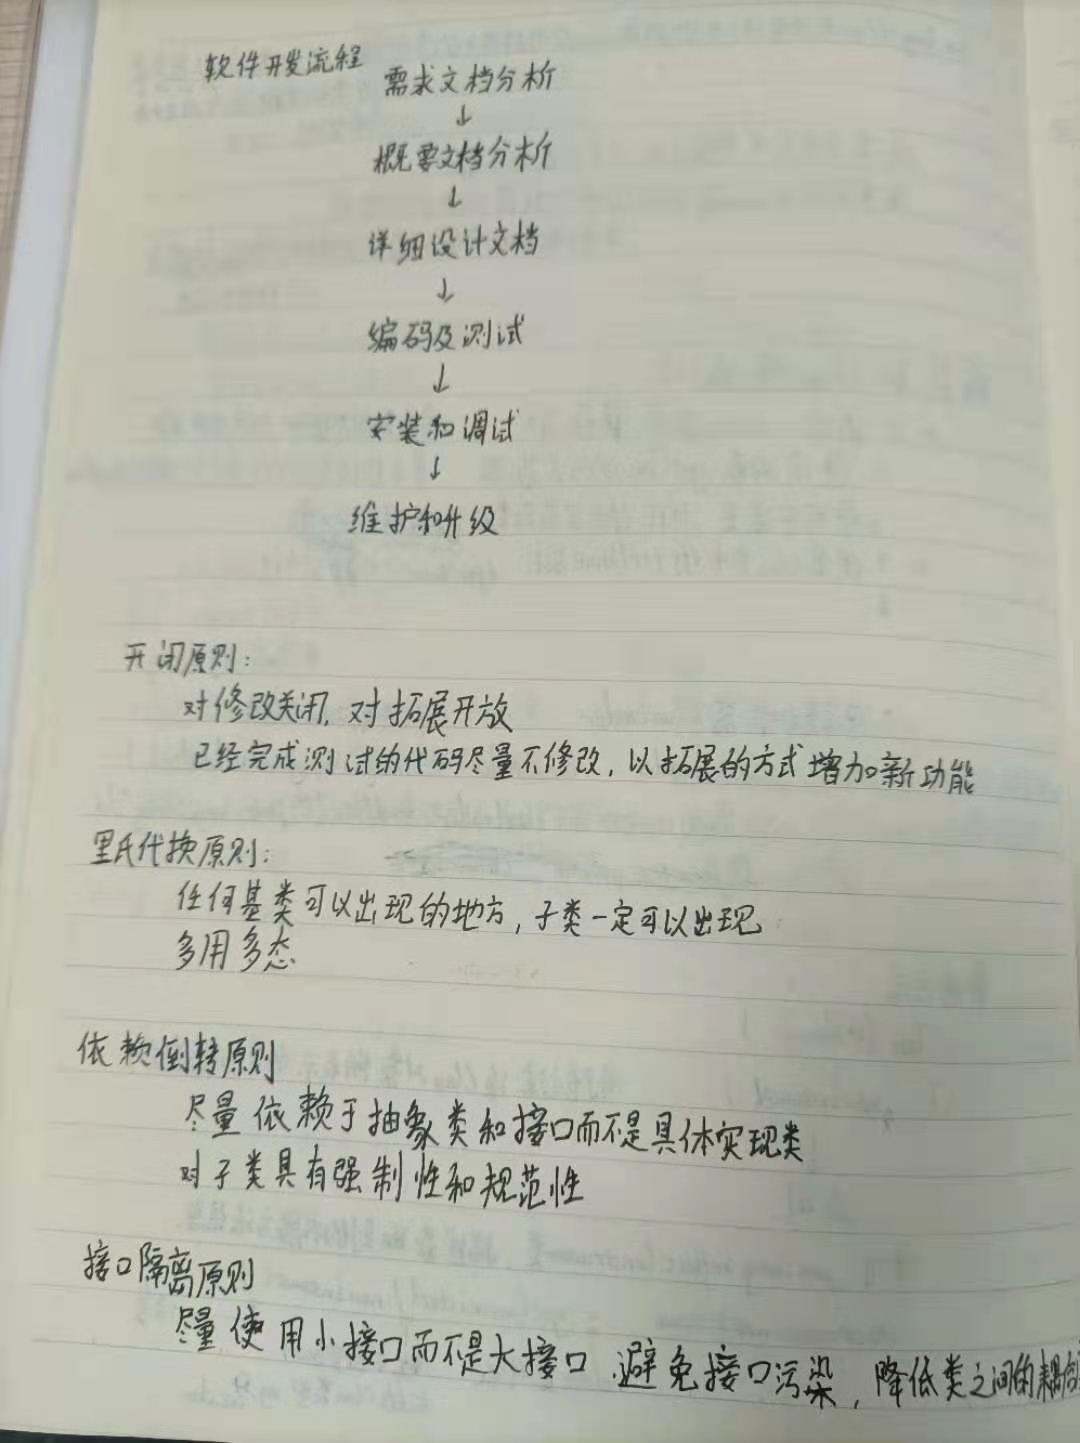 软件开发流程
需求文档分析
↓
概要文档分析
↓
详细设计文档
↓
编码及测试
↓
安装和调试
↓
维护和升级
开闭原则:
对修改关闭, 对拓展开放
已经完成测试的代码尽量不修改, 以拓展的方式增加新功能
里氏代换原则:
任何基类可以出现的地方, 子类一定可以出现
多用多态
依赖倒转原则
尽量依赖于抽象类和接口而不是具体实现类
对子类具有强制性和规范性
接口隔离原则
尽量使用小接口而不是大接口 避免接口污染, 降低类之间的耦